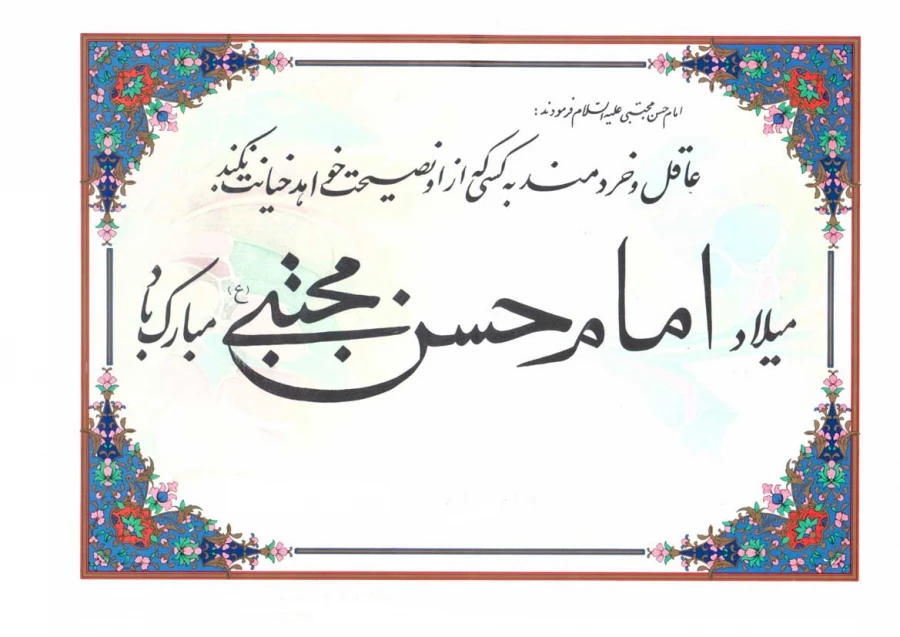 امام حسن مجتبی علیه السلام فرمودند:
عاقل و خردمند به کسی که از او نصیحت خواهد خیانت نکند.
میلاد امام حسن مجتبی (ع) مبارک باد